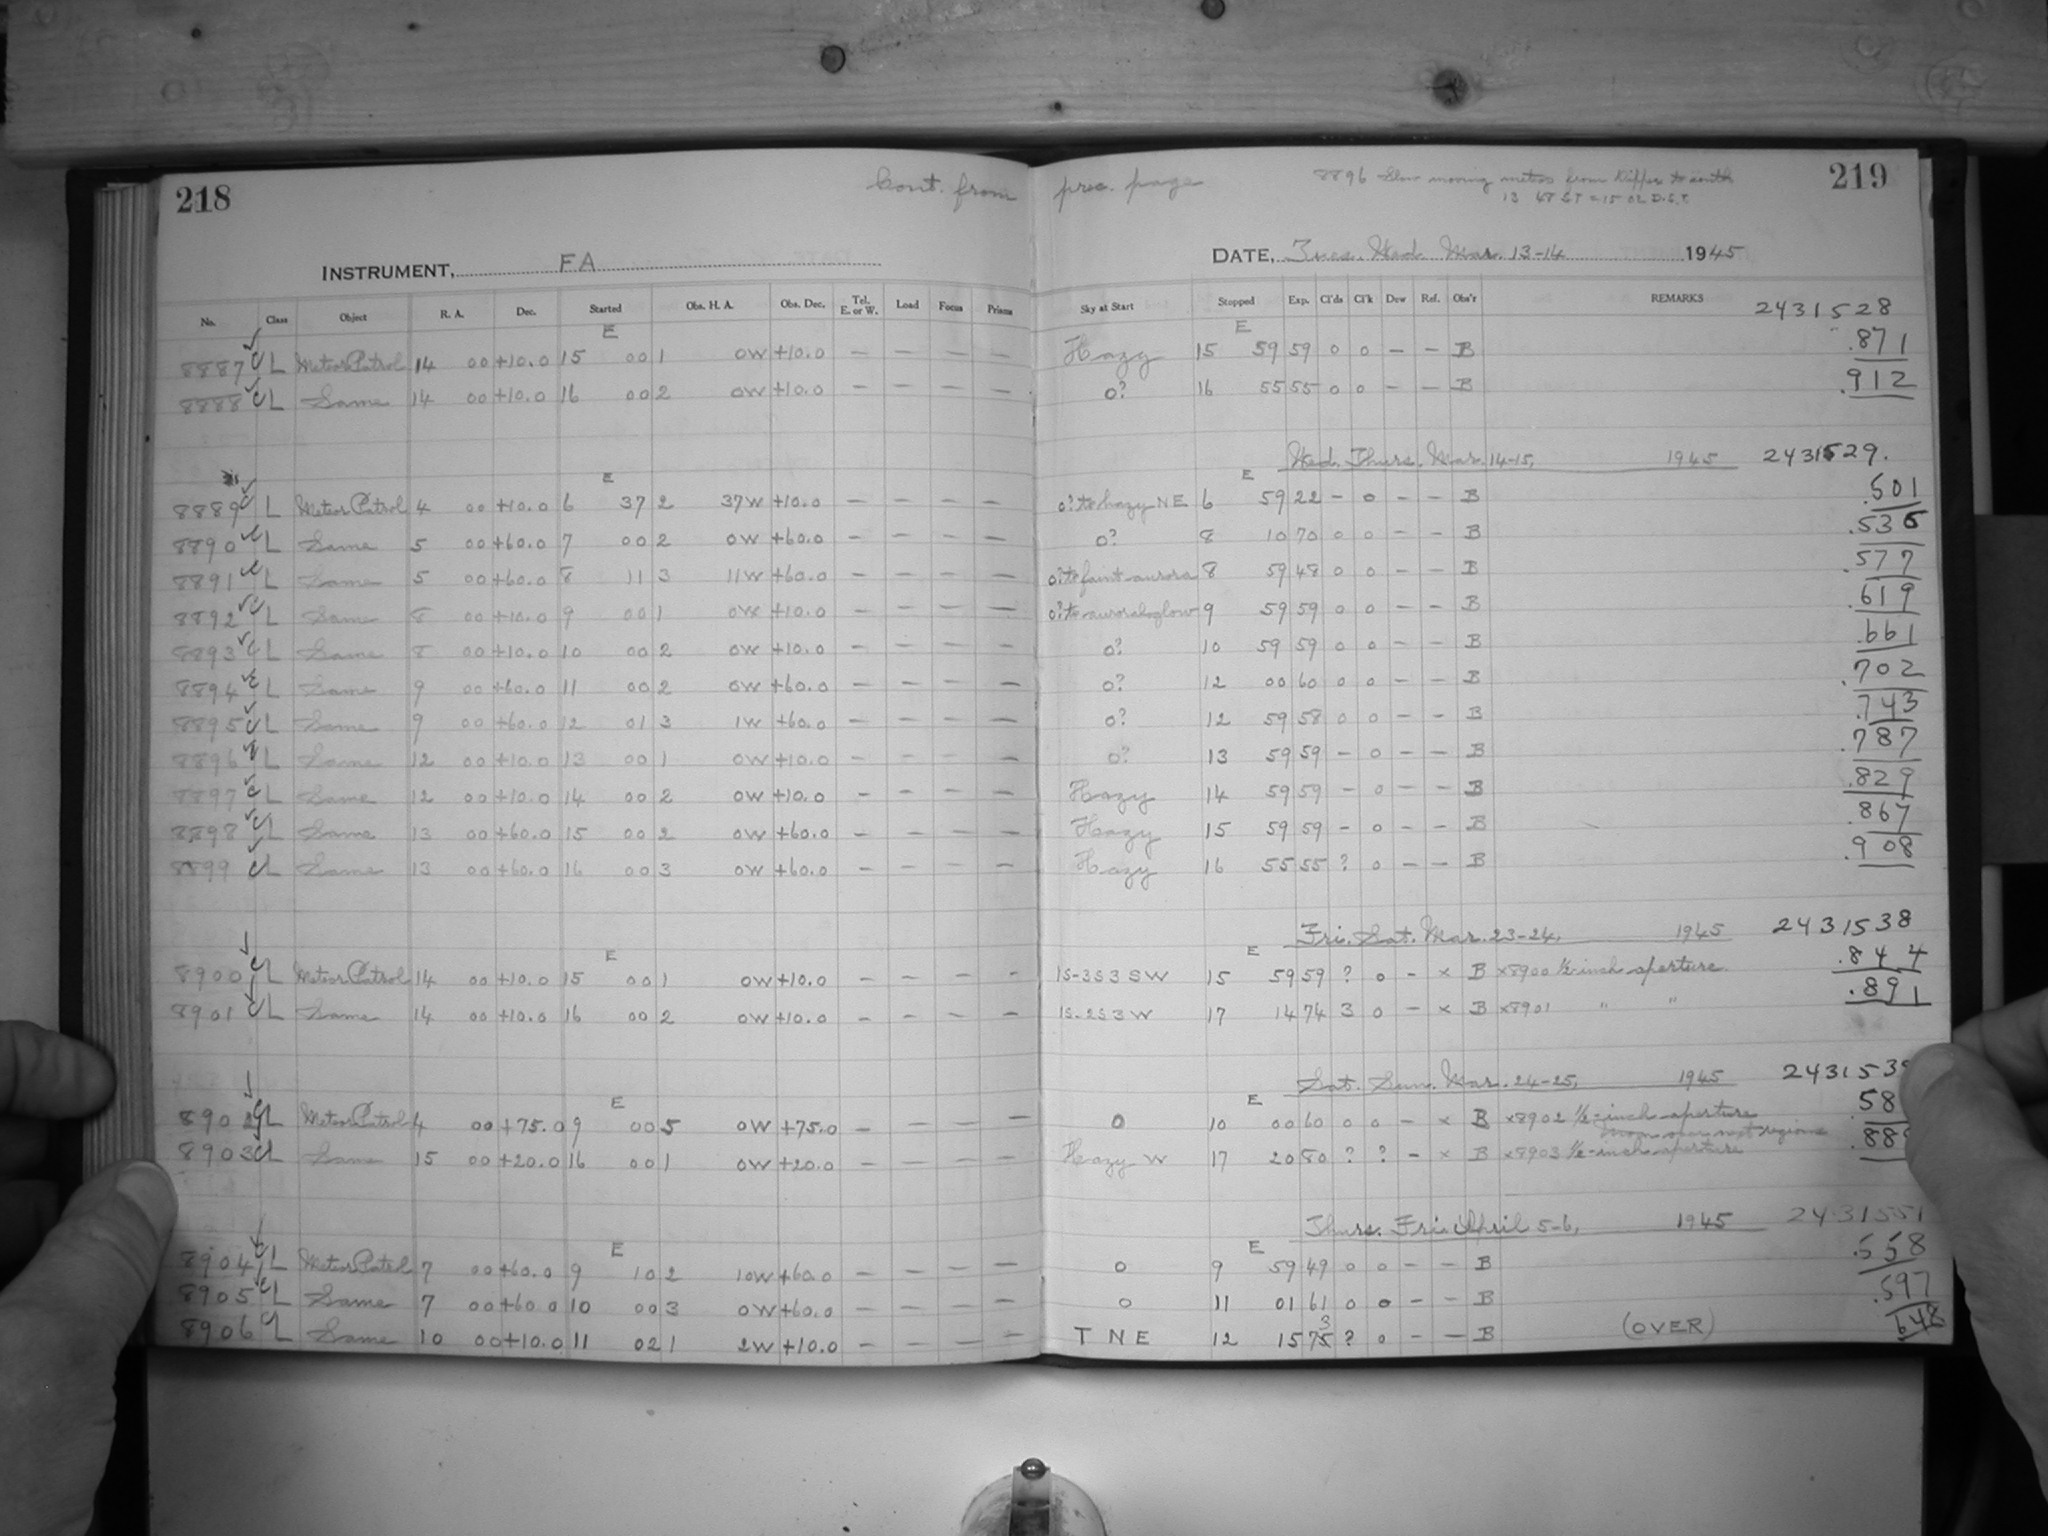 218
Cont. from prec. page
8896 Slow moving meteor from Dipper to south
13 48 ST = 15 02 D.S.T.
219
INSTRUMENT, FA
DATE, Tues. Wed. Mar. 13-14 1945
No. Class Object R. A. Dec. Started Obs. H. A. Obs. Dec. Tel. E. or W. Load Focus Prisms Sky at Start Stopped Exp. Cl'ds Cl'k Dew Ref. Obs'r REMARKS 2431528
E E
8887 CL Meteor Patrol 14 00 +10.0 15 00 1 0W +10.0 — — — — Hazy 15 59 59 0 0 — — B .871
8888 CL Same 14 00 +10.0 16 00 2 0W +10.0 — — — — 0? 16 55 55 0 0 — — B .912
Wed. Thurs. Mar. 14-15, 1945 2431529.
E E
8889 CL Meteor Patrol 4 00 +10.0 6 37 2 37W +10.0 — — — — 0? to hazy NE 6 59 22 — 0 — — B .501
8890 CL Same 5 00 +60.0 7 00 2 0W +60.0 — — — — 0? 8 10 70 0 0 — — B .536
8891 CL Same 5 00 +60.0 8 11 3 11W +60.0 — — — — 0? to faint aurora 8 59 48 0 0 — — B .577
8892 CL Same 8 00 +10.0 9 00 1 0W +10.0 — — — — 0? to auroral glow 9 59 59 0 0 — — B .619
8893 CL Same 8 00 +10.0 10 00 2 0W +10.0 — — — — 0? 10 59 59 0 0 — — B .661
8894 CL Same 9 00 +60.0 11 00 2 0W +60.0 — — — — 0? 12 00 60 0 0 — — B .702
8895 CL Same 9 00 +60.0 12 01 3 1W +60.0 — — — — 0? 12 59 58 0 0 — — B .743
8896 CL Same 12 00 +10.0 13 00 1 0W +10.0 — — — — 0? 13 59 59 — 0 — — B .787
8897 CL Same 12 00 +10.0 14 00 2 0W +10.0 — — — — Hazy 14 59 59 — 0 — — B .829
8898 CL Same 13 00 +60.0 15 00 2 0W +60.0 — — — — Hazy 15 59 59 — 0 — — B .867
8899 CL Same 13 00 +60.0 16 00 3 0W +60.0 — — — — Hazy 16 55 55 ? 0 — — B .908
Fri. Sat. Mar. 23-24, 1945 2431538
E E
8900 CL Meteor Patrol 14 00 +10.0 15 00 1 0W +10.0 — — — — 1S-3S3SW 15 59 59 ? 0 — × B ×8900 ½-inch aperture .844
8901 CL Same 14 00 +10.0 16 00 2 0W +10.0 — — — — 1S-2S3W 17 14 74 3 0 — × B ×8901 " " .891
Sat. Sun. Mar. 24-25, 1945 243153
E E
8902 CL Meteor Patrol 4 00 +75.0 9 00 5 0W +75.0 — — — — 0 10 00 60 0 0 — × B ×8902 ½-inch aperture .58
Moon near regions
8903 CL Same 15 00 +20.0 16 00 1 0W +20.0 Hazy W 17 20 80 ? ? — × B ×8903 ½-inch aperture .88
Thurs. Fri. April 5-6, 1945 2431551
E E
8904 CL Meteor Patrol 7 00 +60.0 9 10 2 10W +60.0 — — — — 0 9 59 49 0 0 — — B .558
8905 CL Same 7 00 +60.0 10 00 3 0W +60.0 — — — — 0 11 01 61 0 0 — — B .597
8906 CL Same 10 00 +10.0 11 02 1 2W +10.0 — — — — T NE 12 15 73 ? 0 — — B (OVER) .648